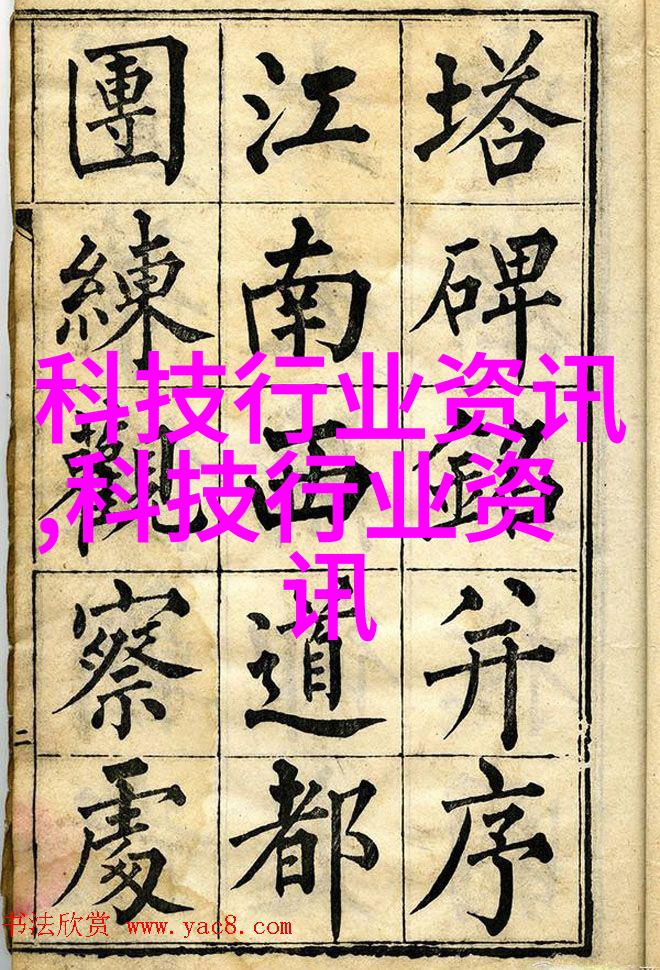 塔碑銘并序
江南西道都
團練觀察處
二
科技行业资讯
,科技行业资
讯
书法欣赏 www.yac8.com